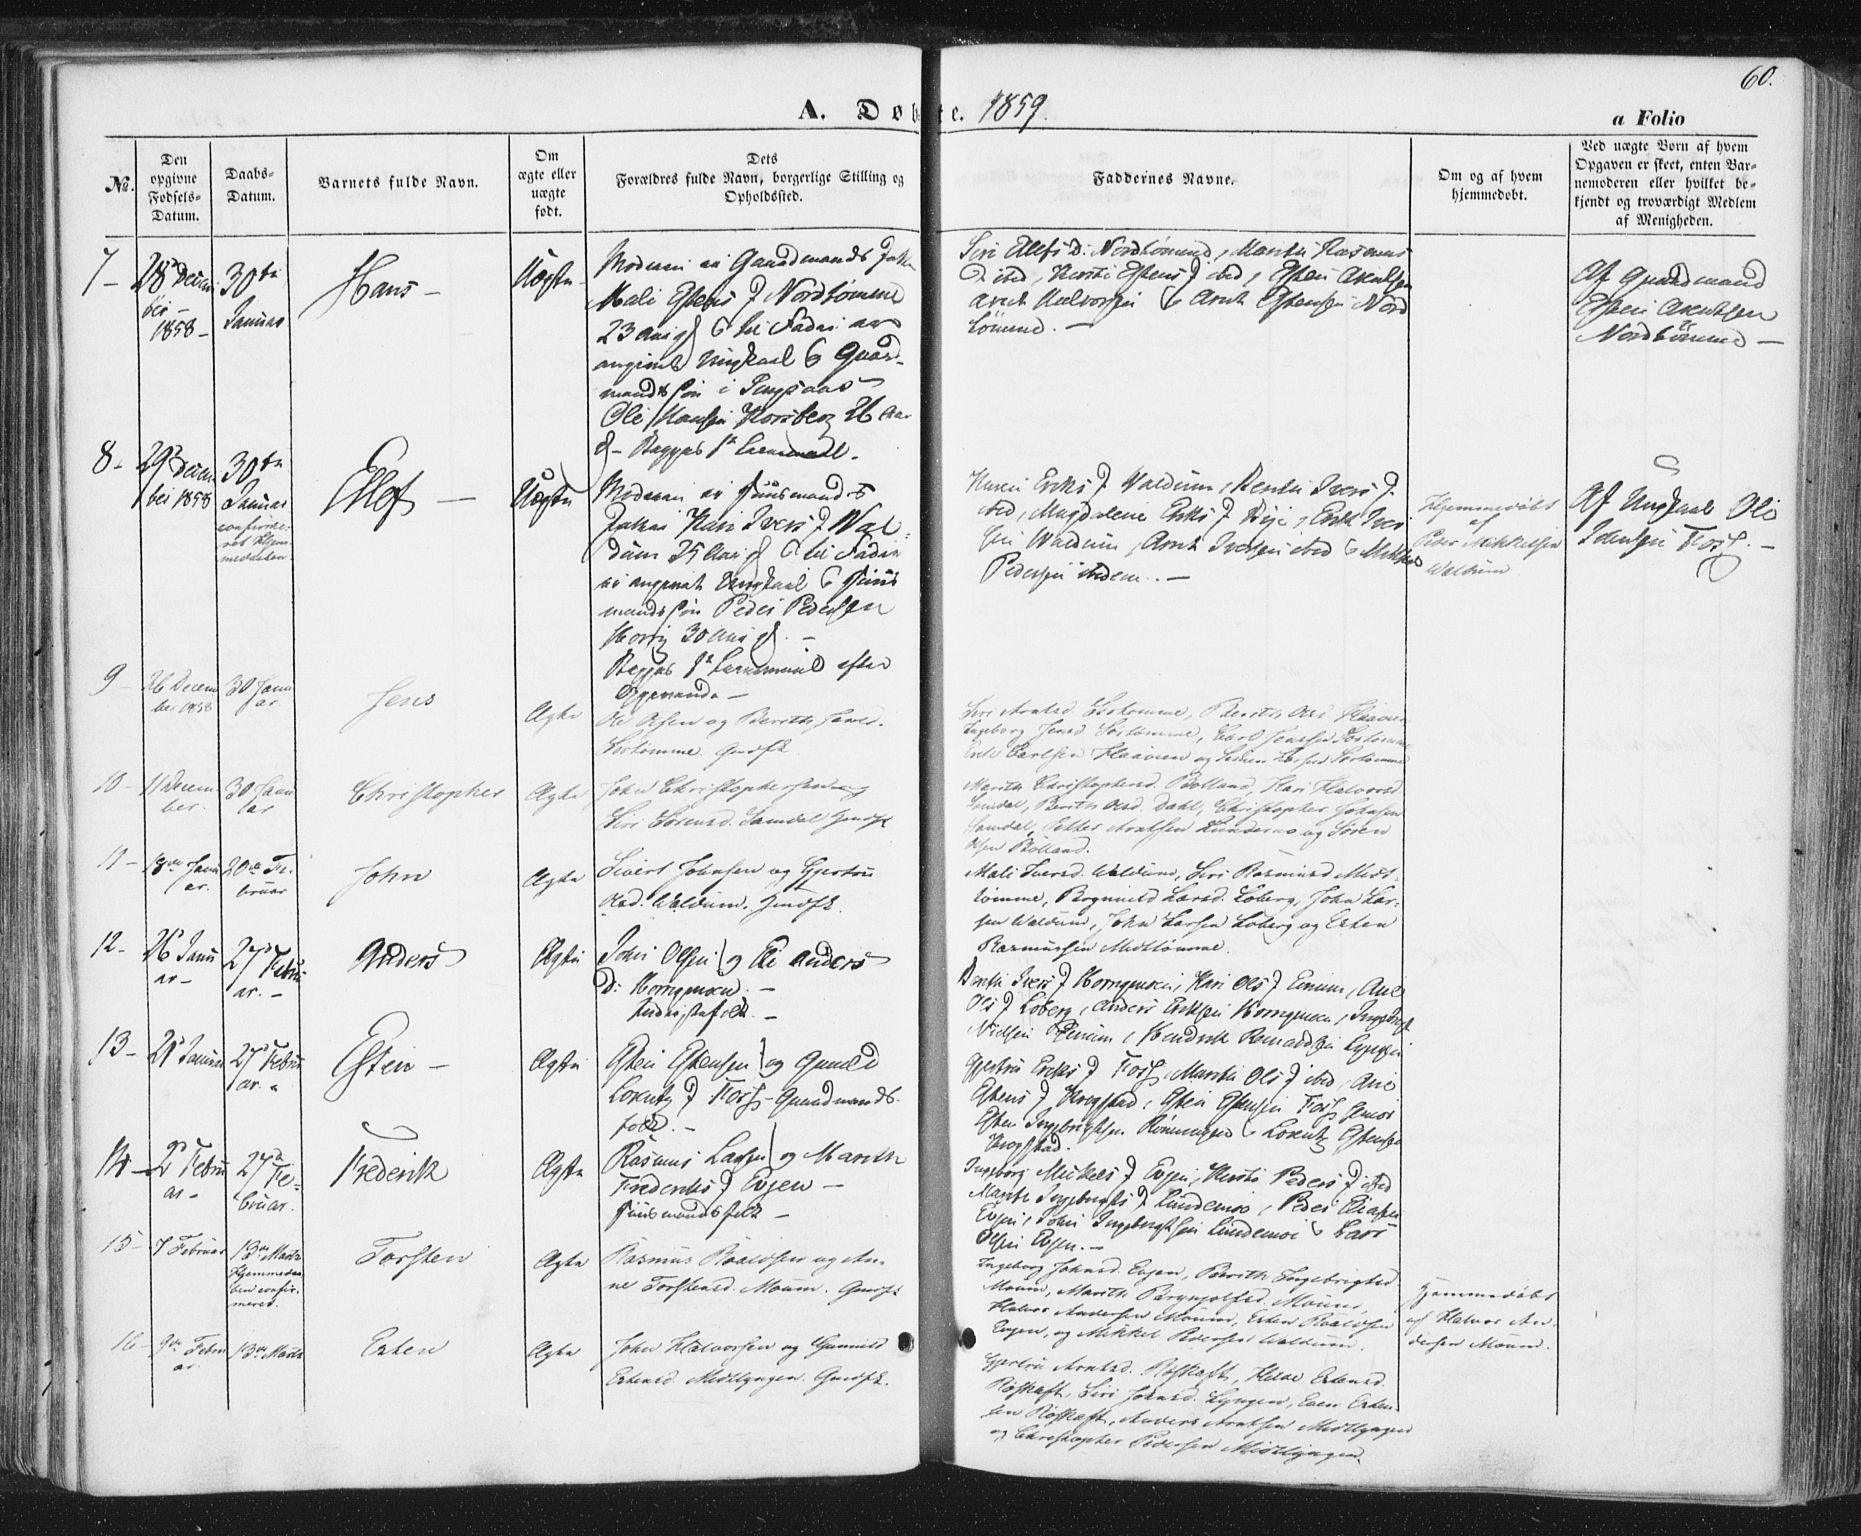 60.
A. Døbte. 1859.
a Folio
No.
Den opgivne Fødsels-Datum.
Daabs-Datum.
Barnets fulde Navn.
Om ægte eller uægte født.
Dets Forældres fulde Navn, borgerlige Stilling og Opholdssted.
Faddernes Navne.
Om og af hvem hjemmedøbt.
Ved uægte Born af hvem Opgaven er skeet, enten Barnemoderen eller hvilket bekjendt og troværdigt Medlem af Menigheden.
7 -
28 Decem
ber -
1858 -
30te
Januar
Hans -
Uægte
Moderen er Gaardmands
Mali Estens D Nordtømme
23 Aar gl. og til Fader er
angivet Ungkarl og Gaard-
mandssøn i Singsaas
Ole Hansen Forsberg 26 Aar
gl - Begges 1ste Leiermaal.
Siri Ellefs D. Nordtømme, Marith Rasmus
D ibid, Kirsti Estens D ibid, Esten Arntsen
Arnt Halvorsen og Arnt Estensen Nord
tømme. -
Af Gaardmand
Esten Arntsen
Nordtømme -
8 -
29 Decem
ber 1858
30te
Januar
confirme-
ret Hjem-
medaaben
Ellef -
Uægte
Moderen er Huusmands
Kari Ivers D Wal
dum 25 Aar gl og til Fader
er angivet Ungkarl og Huus
mandssøn Peder Pedersen
Horrig 30 Aar gl. -
Begges 1ste Leiermaal efter
Opgivende -
Karen Eriks D Waldum, Berith Ivers D
ibid, Magdalene Eriks D Bye, Erik Iver
sen Waldum, Arnt Iversen ibid og Mikkel
Pedersen ibidem. -
Hjemmedøbt
af
Peder Mikkelsen
Waldum
Af Ungkarl Ole
Forsz. -
9 -
26 Decem
ber 1858
30 Janu
ar
Jens
Ægte
Ole Olsen og Berith Jensd.
Sørtømme. Gmdfk.
Siri Arntsd Sørtømme, Berith Olsd Haaven
Ingeborg Jensd Sørtømme, Carl Jensen Sørtømme
Erik Carlsen Haaven og Søren Larsen Sørtømme
10 -
11 Decem
ber.
30 Janu
ar
Christopher
Ægte
John Christophersen og
Siri Sørensd. Samdal Gmdfk
Marith Christophersd. Bolland, Kari Halvorsd
Samdal, Berith Olsd. Dahl, Christopher Johnsen
Samdal, Petter Arntsen Lundemo og Søren
Olsen Bolland.
11 -
18de Janu
ar.
20de Fe-
bruar
John
Ægte
Sivert Johnsen og Gjertru
Olsd. Waldum. Gmdfk.
Mali Iversd. Waldum, Siri Rasmusd Midt-
tømme, Bergnild Larsd. Loberg, John Lar-
sen Waldum, John Larsen Loberg og Esten
Rasmussen Midttømme.
12 -
26 Janu
ar -
27 Febru
ar. -
Anders
Ægte
John Olsen og Eli Anders
D. Horngmoen. -
Inderstfolk. -
Berith Ivers D Horngmoen, Kari Ols D Einum, Ane
Ols D Loberg, Anders Eriksen Horngmoen, Ingebrigt
Nielsen Einum,
13 -
21 Januar
27 Febru
ar.
Esten -
Ægte
Esten Estensen og Gunild
Lorentz D Forsz - Gaardmands-
folk. -
Gjertru Eriks D Forsz, Marith Ols D ibid, Ane
Estens D Krogstad, Esten Estensen Forsz
Esten Ingebrigtsen og Lorentz Estensen
Krogstad.
14 -
2 Febru
ar -
27 Fe-
bruar.
Frederik
Ægte
Rasmus Larsen og Marith
Frederiks D Evjen -
Huusmandsfolk -
Ingeborg Mikkels D Evjen, Kirsti Peders D ibid
Marith Ingebrigts D Lundemo, Peder
Evjen, John Ingebrigtsen Lundemo og Lars
Olsen Evjen. -
15 -
7 Februar
13de Marts
Hjemmedaa-
ben confir-
meret.
Torsten
Ægte
Rasmus Roaldsen og An-
ne Torstensd. Moum. Gmdfk
Ingeborg Johnsd Evjen, Berith Ingebrigtsd
Moum, Marith Bergnjolfsd. Moum,
Halvor Andersen Moum, Esten Roaldsen
Evjen, og Mikkel Pedersen Waldum.
Hjemmedøbt
af Halvor An-
dersen Moum.
16 -
9de Febru
ar.
13de Marts
Esten
Ægte
John Halvorsen og Gunnild
Estensd. Midtlyngen. Gmdfk.
Gjertru Arntsd. Røskaft, Hilde Estensd.
Røskaft, Siri Johnsd. Lyngen, Even Esten-
sen Røskaft, Anders Arntsen Midtlyngen
og Christopher Pedersen Midtlyngen.